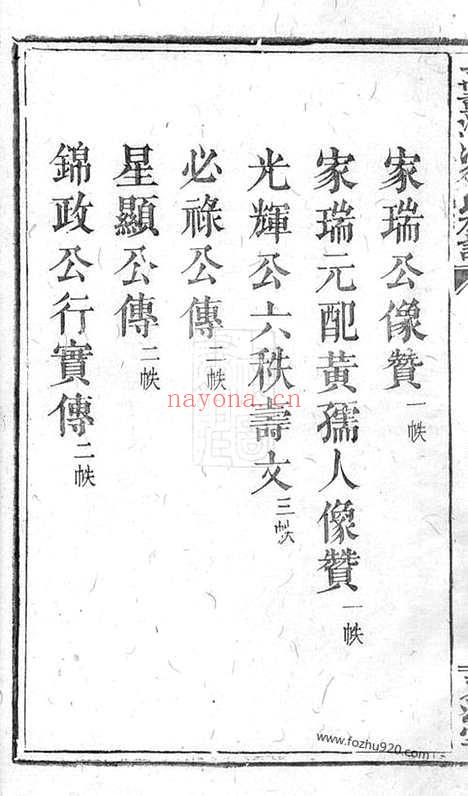 家瑞公像贊一帙
家瑞元配黃孺人像贊一帙
光輝公六秩壽文三帙
必祿公傳二帙
星顯公傳二帙
錦政公行實傳二帙
nayona.cn
www.fozhu920.com